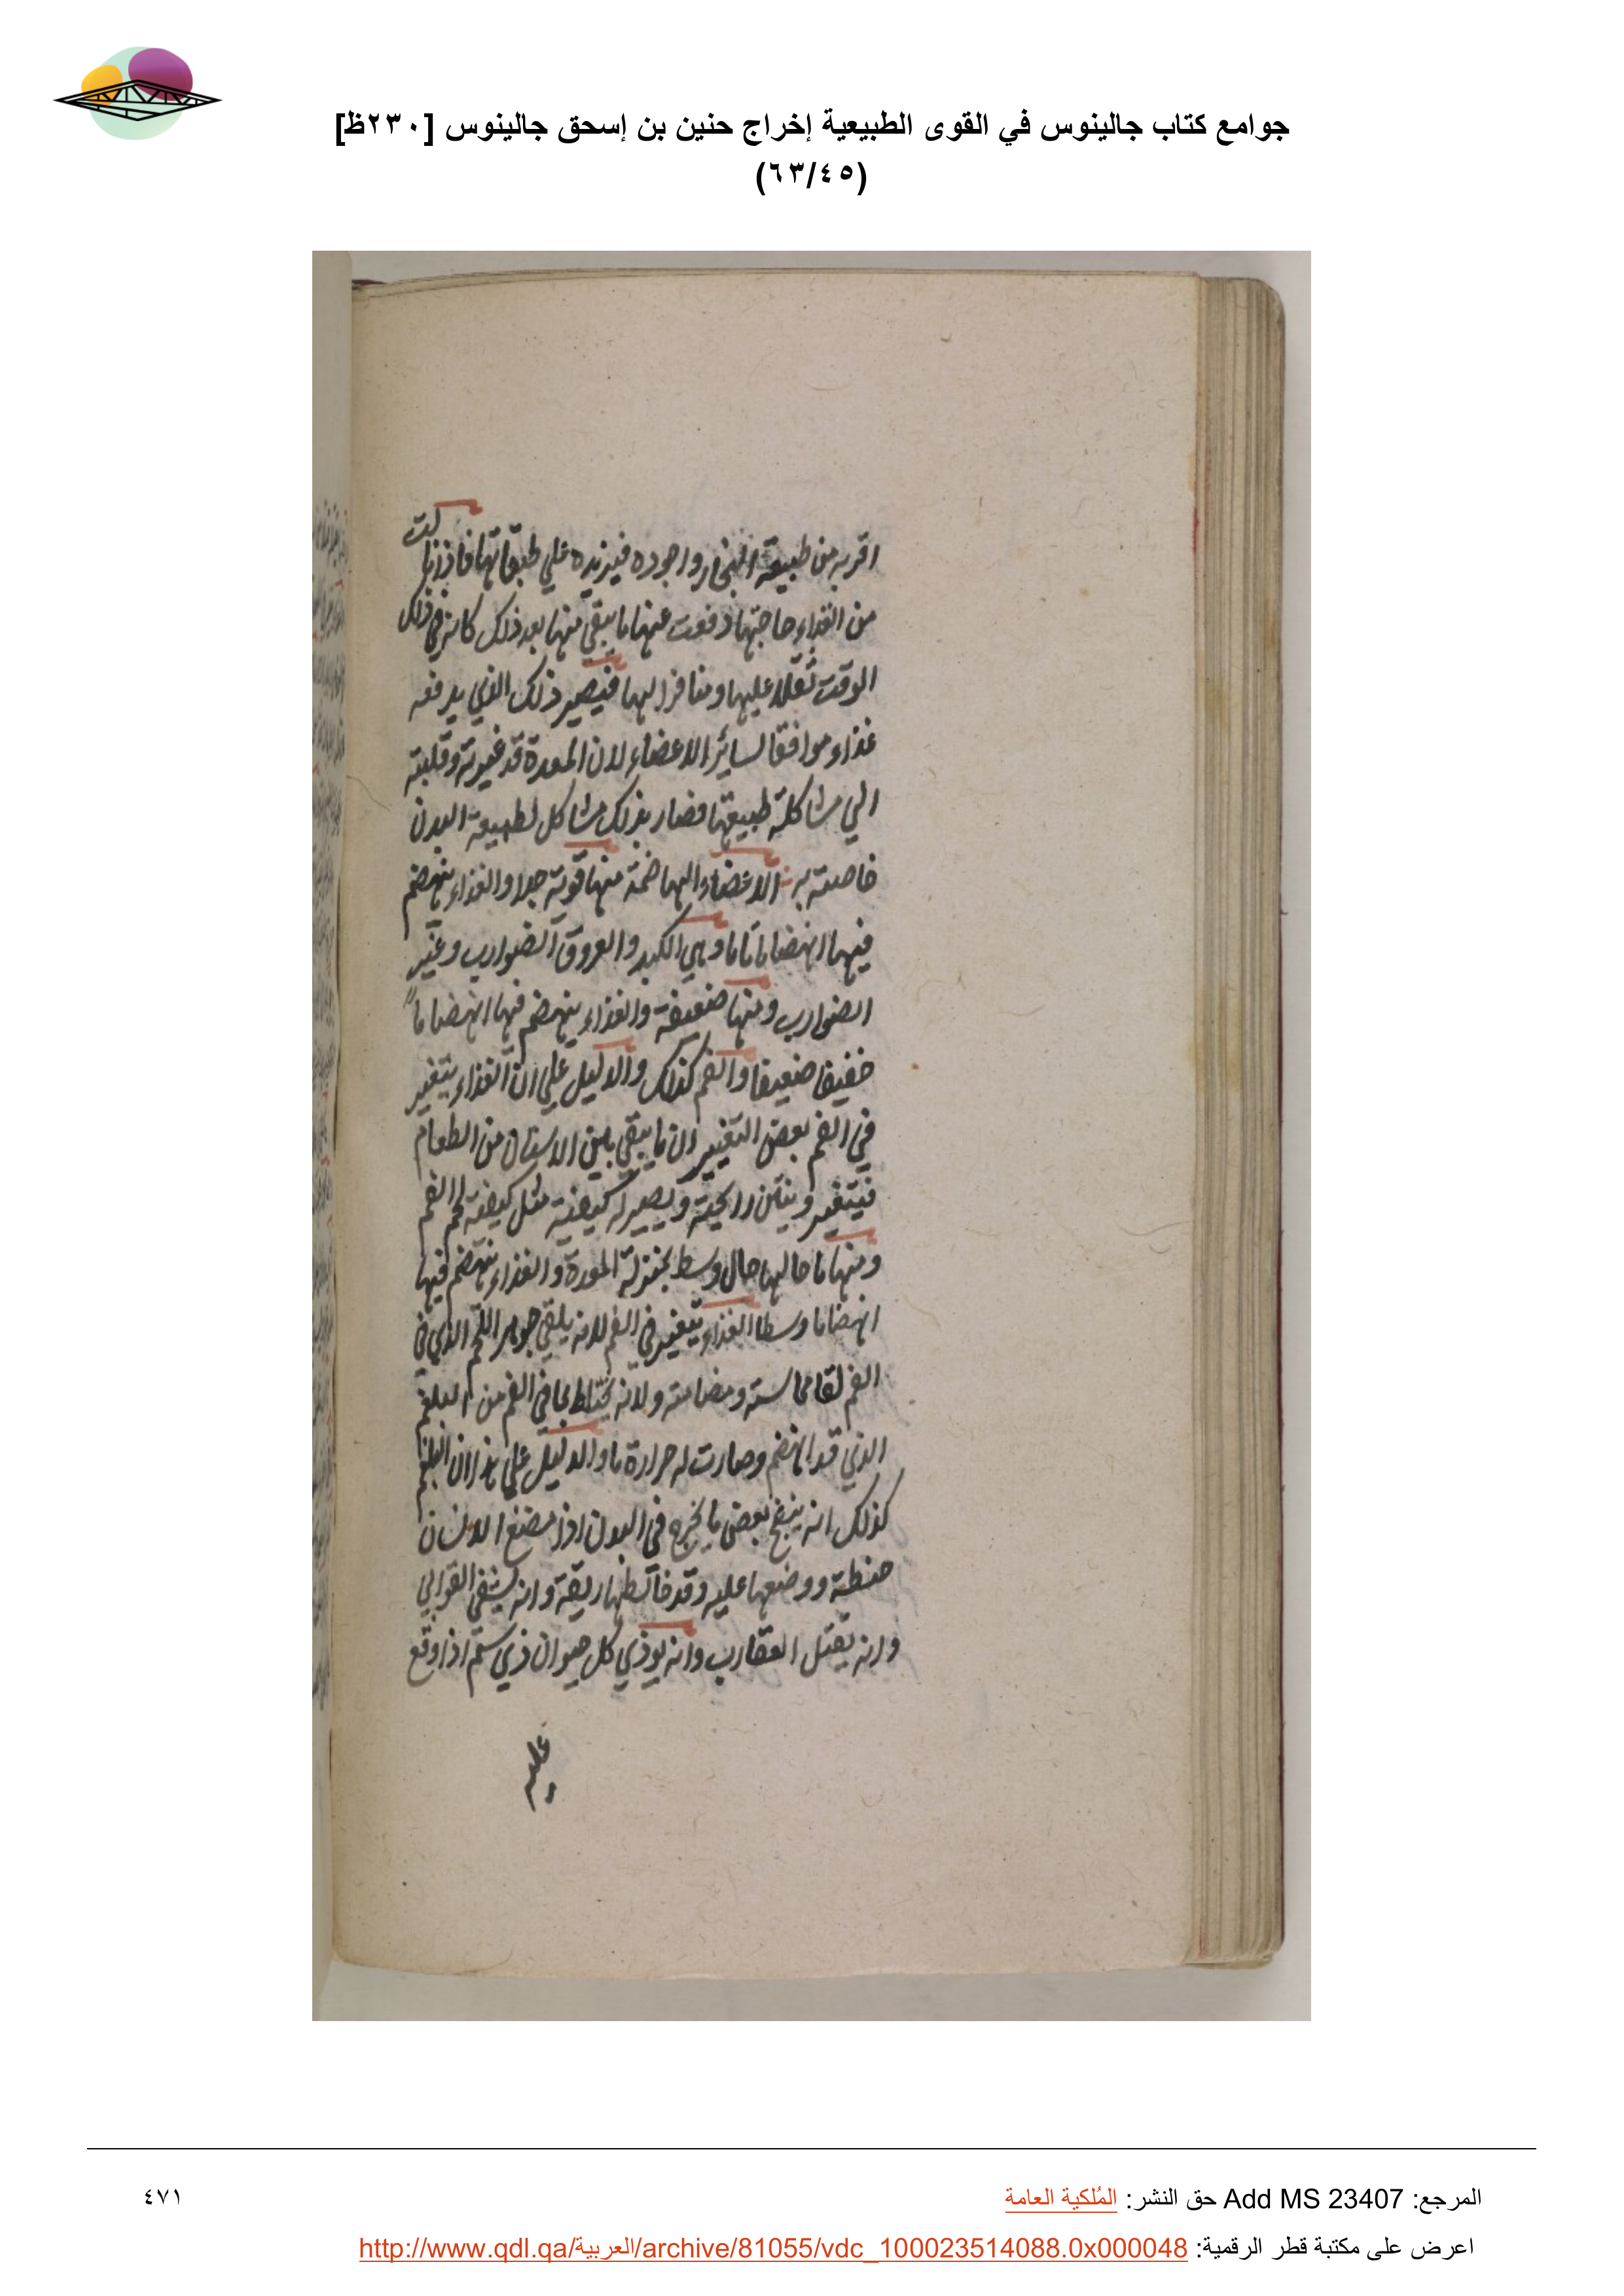 جوامع كتاب جالينوس في القوى الطبيعية إخراج حنين بن إسحق جالينوس [٢٣٠ظ]
(٦٣/٤٥)
اقربه من طبيعة البخار واجوده فيزيده علي طبقاتها فاذا نالت
من الغذاء حاجتها دفعت عنها ما يبقي منها بعد ذلك كانه في ذلك
الوقت ثقلا عليها ومنافرا اليها فيصير ذلك الذي يدفعه
غذاء موافقا لسائر الاعضاء لان المعدة قد غيرته وقلبته
الي مشاكلة طبيعتها فصار بذلك مشاكل لطبيعة البدن
خاصته به الاعضاء الهاضمة منها قوية جدا والغذاء ينهضم
فيها انهضاما تاما وهي الكبد والعروق الضوارب وغير
الضوارب ومنها ضعيفة والغذاء ينهضم فيها انهضاما
خفيفا ضعيفا والفم كذلك والدليل علي ان الغذاء يتغير
في الفم بعض التغيير ان ما يبقي بين الاسنان من الطعام
فيتغير وينتن رايحته ويصير له كيفية مثل كيفية لحم الفم
ومنها ما حالها حال وسط بمنزلة المعدة والغذاء ينهضم فيها
انهضاما وسطا الغذاء يتغير في الفم لانه يلقي جوهر اللحم الذي في
الفم لقا مماسته ومضامته ولانه يختلط بما في الفم من البلغم
الذي قد انهضم وصارت له حرارة ما والدليل علي هذا ان البلغم
كذلك انه ينضج بعض ما يخرج في البدن اذا مضغ الانسان
حنطة ووضعها عليه وقد خالطها ريقه وانه يشفي القوابي
وانه يقتل العقارب وانه يوذي كل حيوان ذي سم اذا وقع
عليه
المرجع: Add MS 23407 حق النشر: المُلكية العامة
٤٧١
اعرض على مكتبة قطر الرقمية: http://www.qdl.qa/العربية/archive/81055/vdc_100023514088.0x000048